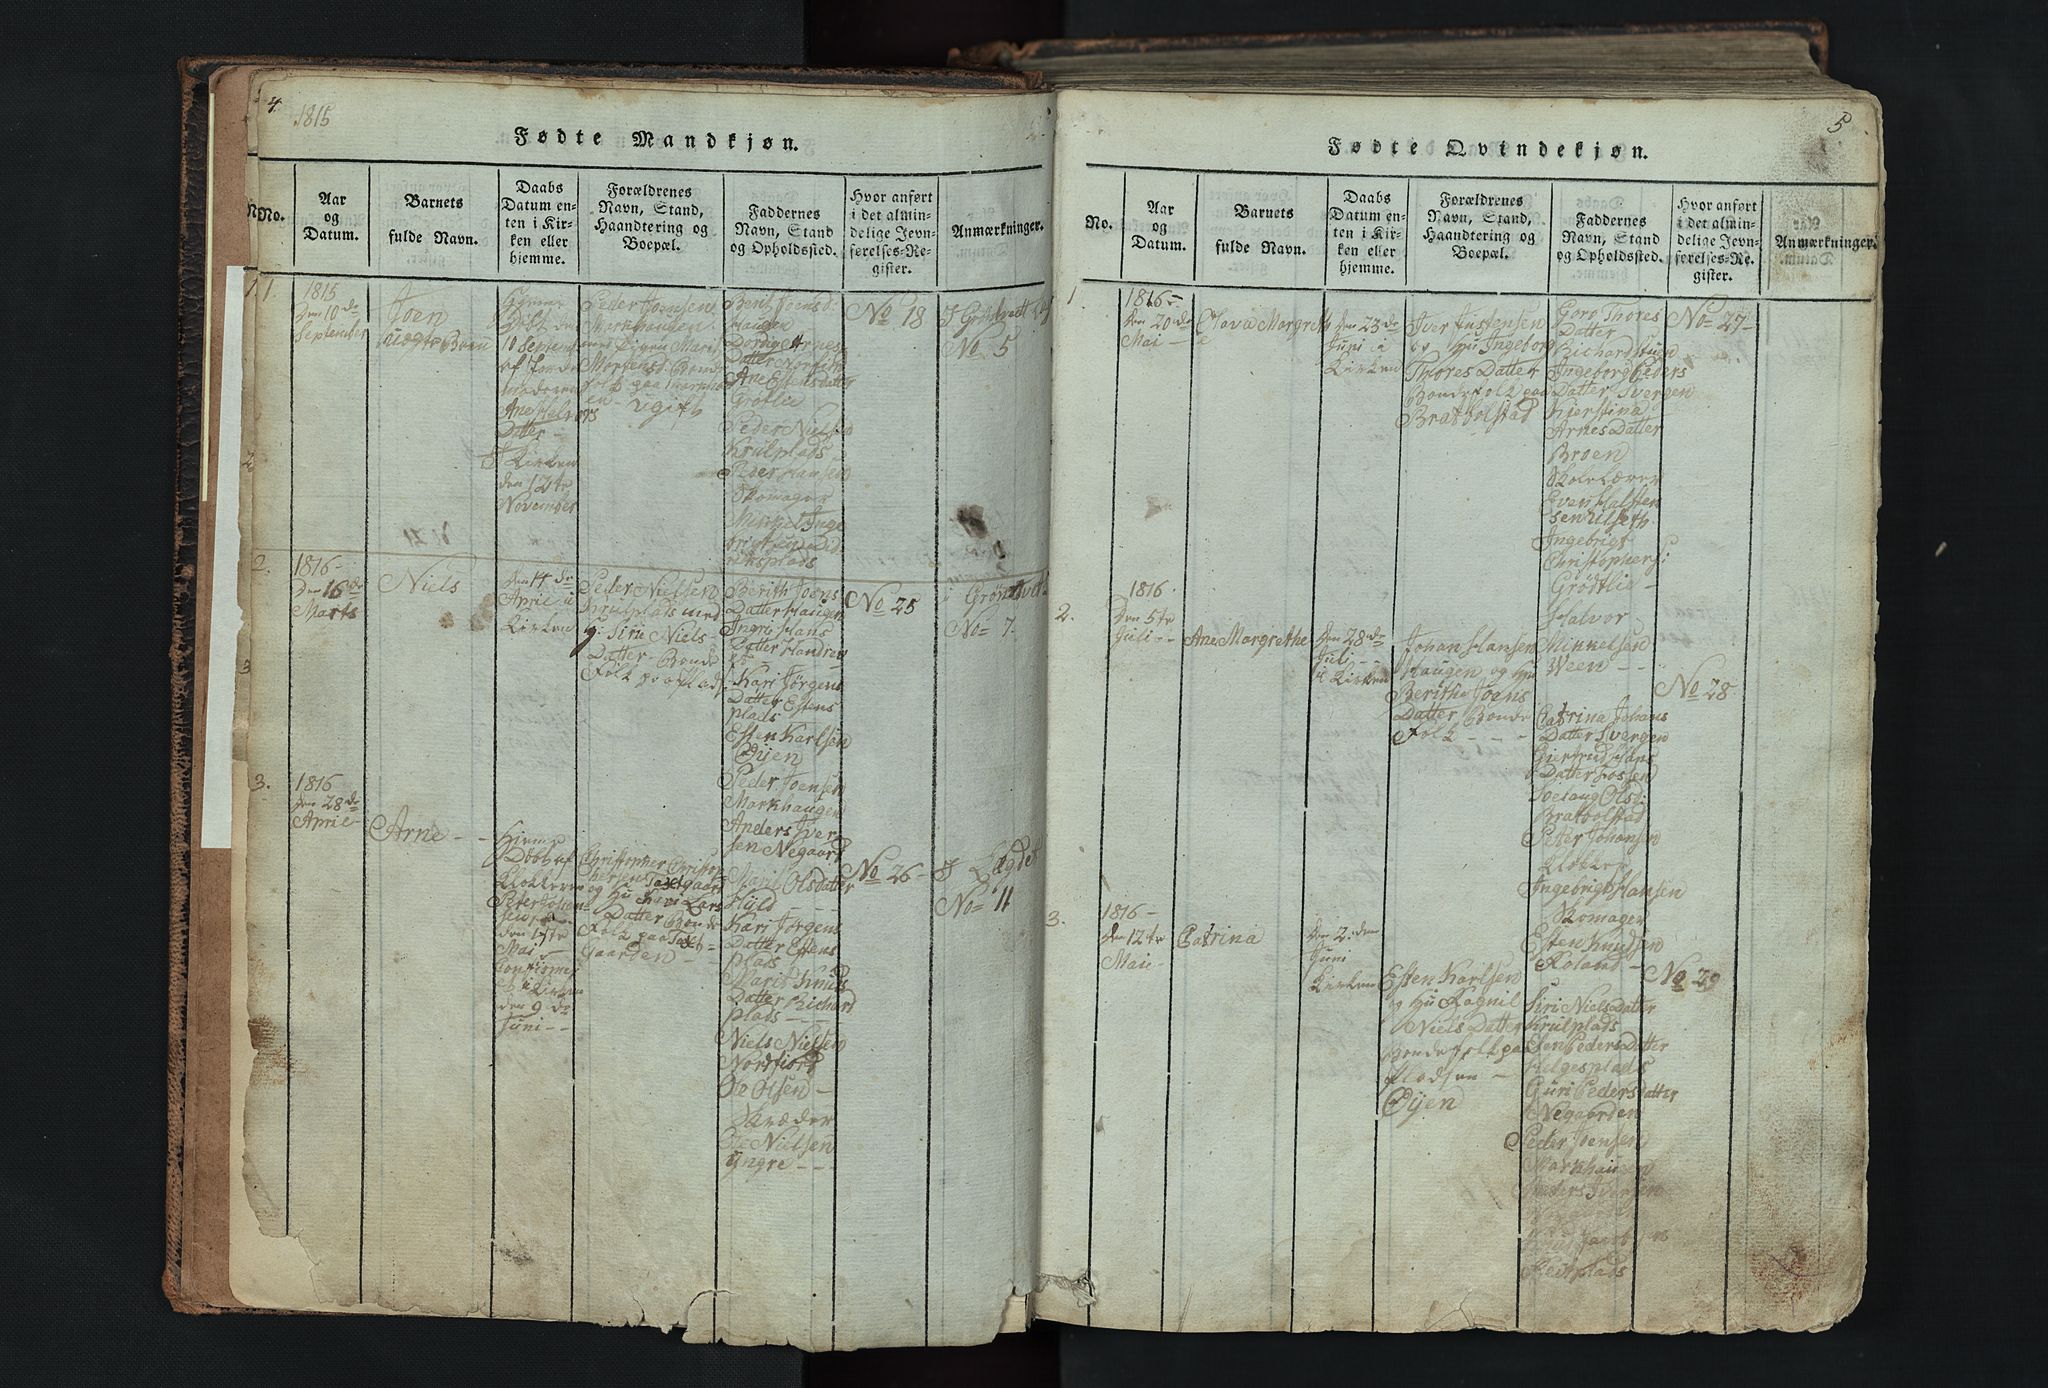 4.
1815
Fødte Mandkjøn.
No.
Aar og Datum.
Barnets fulde Navn.
Daabs Datum enten i Kirken eller hjemme.
Forældrenes Navn, Stand, Haandtering og Boepæl.
Faddernes Navn, Stand og Opholdssted.
Hvor anført i det almindelige Jevnførelses-Register.
Anmærkninger.
1.
1815
Den 10 de
September
Joen
uægte Barn
Hjemme
Døbt den
10 Septemb
af Jorde
moderen
Ane Halvors
Datter
I Kirken
den 12te
November
Peder Joensen
Markhaugen
Pigen Marit
Mortensd. Bonde
folk paa Markhau
en - Ugift
Berit Joensd.
Haugen
Dordi Arnes
Datter
Ane Estensdatter
Grötlie
Peder Nielsen
Krulplads
Peder Hansen
Skomager
Mikkel Inge
brigtsen Did
riksplads
No 18
No 5
2.
1816-
Den 16 de
Marts
Niels
den 14 de
April i
Kirken
Peder Nielsen
Krulplads med
q: Siri Niels-
Datter- Bonde
Folk paa Plads
Berith Joens
Datter Haugen
Ingri Hans
Datter
Kari Jörgens
Datter Estens
plads
Esten Karlsen
Øijen
Peder Joensen
Markhaugen
Anders Iver
sen Negaard
No 25
No= 7.
3.
1816
den 28 de
April-
Arne - -
Hjemme
Döbt af
Klokkeren
Peter Johan
sen
den 1ste
Mai -
Confirme
et i Kirken
den 9 de
Juni - -
Christopher Christop
hersen Taxtgaard
og Hu Kari Lars
Datter Bonde
Folk paa Taxt=
Gaarden -
Marit Olsdatter
Hyld
Kari Jörgens
Datter Estens
plads
Marit Knuds
Datter Richard
plads
Niels Nielsen
Nordfiord
Ole Olsen -
Skræder
Ole Nielsen
yngre - - -
No 26-
I Lægdet
No= 11
5
Fødte Qvindekjøn.
No.
Aar og Datum.
Barnets fulde Navn.
Daabs Datum enten i Kirken eller hjemme.
Forældrenes Navn, Stand, Haandtering og Boepæl.
Faddernes Navn, Stand og Opholdssted.
Hvor anført i det almindelige Jevnførelses-Register.
Anmærkninger.
1.
1816-
Den 20 de
Mai -
Olava Margreth
e
den 23 de
Juni i
Kirken
Iver Justensen
og Hu Ingeborg
Thores Datter
Bonde Folk paa
Bratbolstad
Goro Thores
Datter
Richardstuen
Ingeborg Peders
Datter Svergen
Kjerstina
Arnes Datter
Broen
Skole Lærer
Even Halsten
sen Ulseth
Ingebrigt
Christophers:
Grödtlie -
Halvor
Mikkelsen
Ween - -
No= 27-
2.
1816.
Den 5te
Juli - -
Ane Margrethe
Den 28 de
Juli
i Kirken
Johan Hansen
Haugen og Hu
Berithe Joens
Datter Bonde
Folk - - -
Catrina Johans
Datter Svergen
Giertrud Hans
Datter Fossen
Soelaug Olsd
Bratbolstad
Peter Johansen
Klokker
Ingebrigt Hansen
Skomager
Esten Knudsen
Roland -
No 28
3.
1816-
Den 12te
Mai-
Catrina
den 2. den
Juni
Kirken
Esten Karlsen
og Hu Ragnil
Niels Datter
Bonde folk paa
Pladsen -
Øijen
Siri NielsDatter
Krulplads
PedersDatter
Helgesplads
Guri Pedersdatter
Negaarden
Peder Joensen
Markhaugen
Anders Iversen
No 29